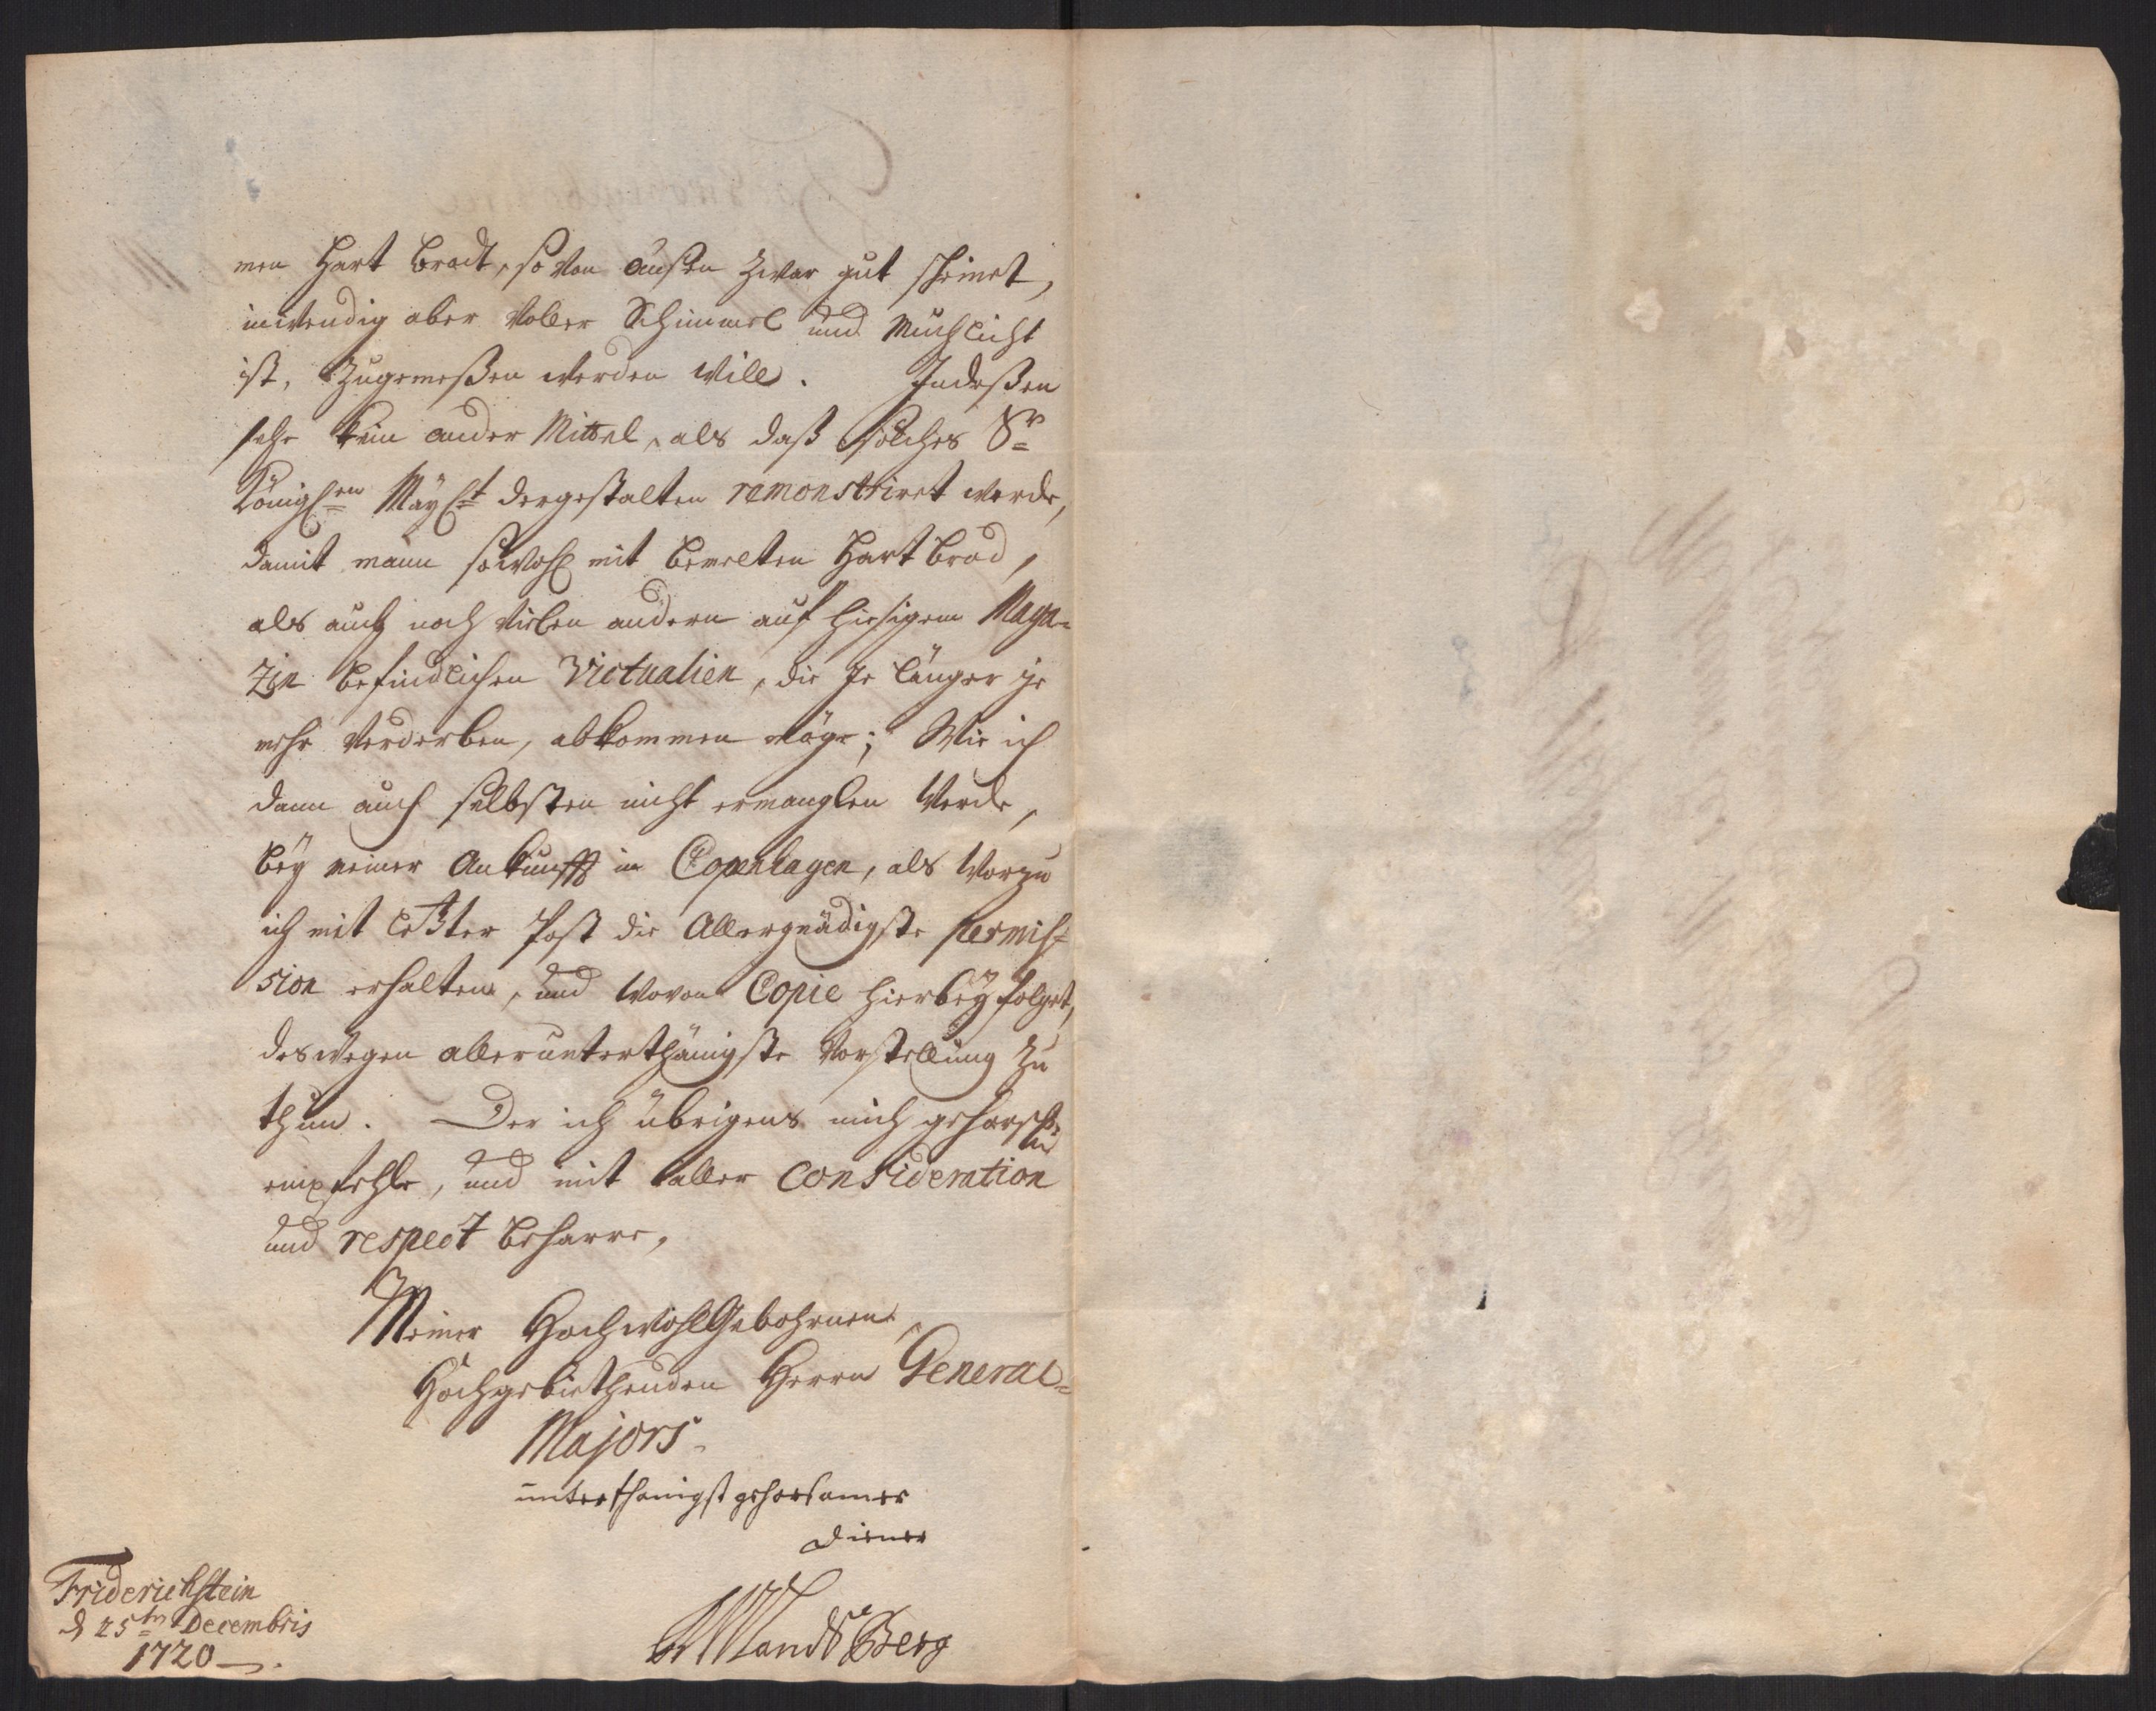 men Hart Brodt, so von außen zwar gut scheinet,
inwendig aber voller Schimmel und muchlicht
ist, zugemeßen werden will. Indeßen
sehe kein ander Mittel, als daß solches Sr
Königlen Mayst dergestalten remonstriret werde,
damit mann sowohl mit bemelten Hart Brod,
als auch noch vielen andern auf hiesigem Maga-
zin befindlichen Victualien, die je länger je
mehr verderben, abkommen möge; Wie ich
dann auch selbsten nicht ermanglen werde,
bey meiner Ankunfft in Copenhagen, als worzu
ich mit letzter Post die Allergnädigste permis-
sion erhalten, und wovon Copie hierbey folget,
deswegen allerunterthänigste Vorstellung zu
thun. Der ich übrigens mich gehorsst
empfehle, und mit aller consideration
und respect beharre,
Meines HochwohlGebohrnen,
Hochgebiethenden Herrn General-
Majors
unterthänigst gehorsamer
Diener
Landsberg
Friderichstein
d 25tn Decembris
1720